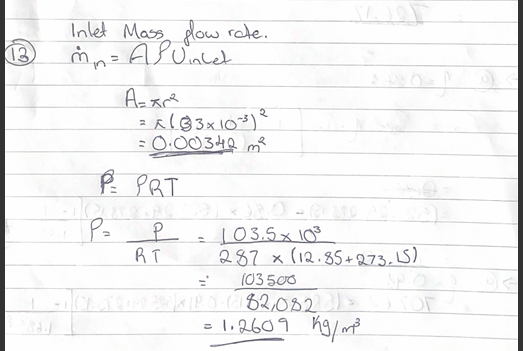 Inlet Mass flow rate.
(13) ṁn = Aρ Uinlet
A = πr²
= π(33×10⁻³)²
= 0.00342 m²
P = ρRT
ρ = P / RT = 103.5×10³ / 287 × (12.85+273.15)
= 103500 / 82,082
= 1.2609 Kg/m³